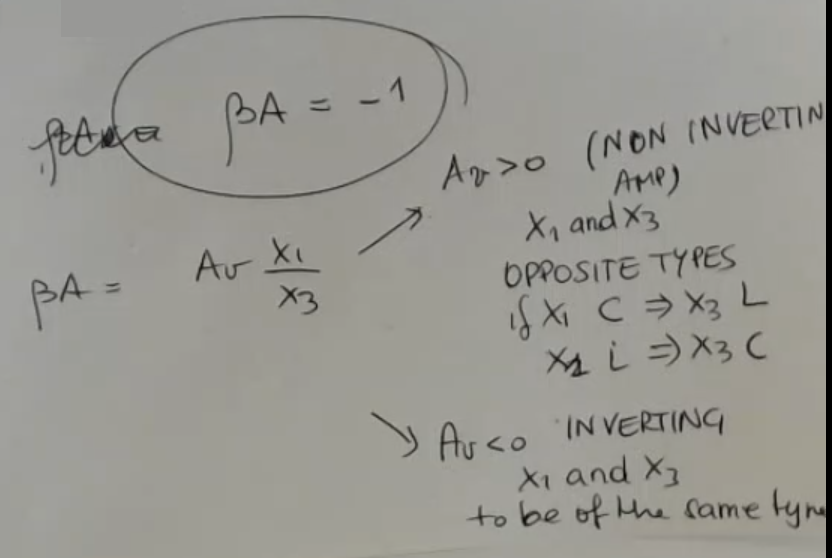 βA = -1
βA = Av X1/X3
Av>0 (NON INVERTIN
AMP)
X1 and X3
OPPOSITE TYPES
if X1 C ⇒ X3 L
X1 L ⇒ X3 C
Av<0 INVERTING
X1 and X3
to be of the same type